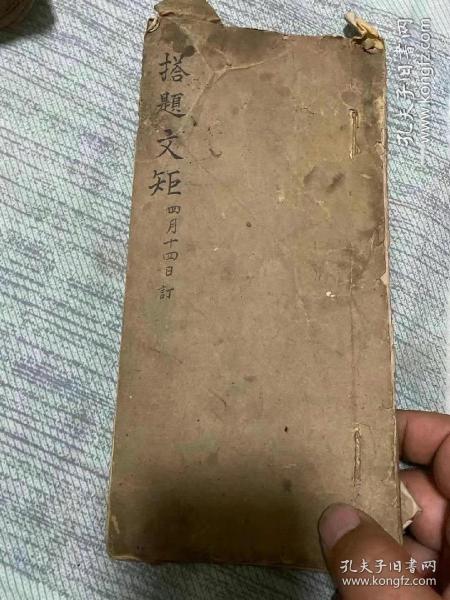 搭題文矩
四月十四日訂
孔夫子旧书网
www.kongfz.com
孔夫子旧书网
www.kongfz.com